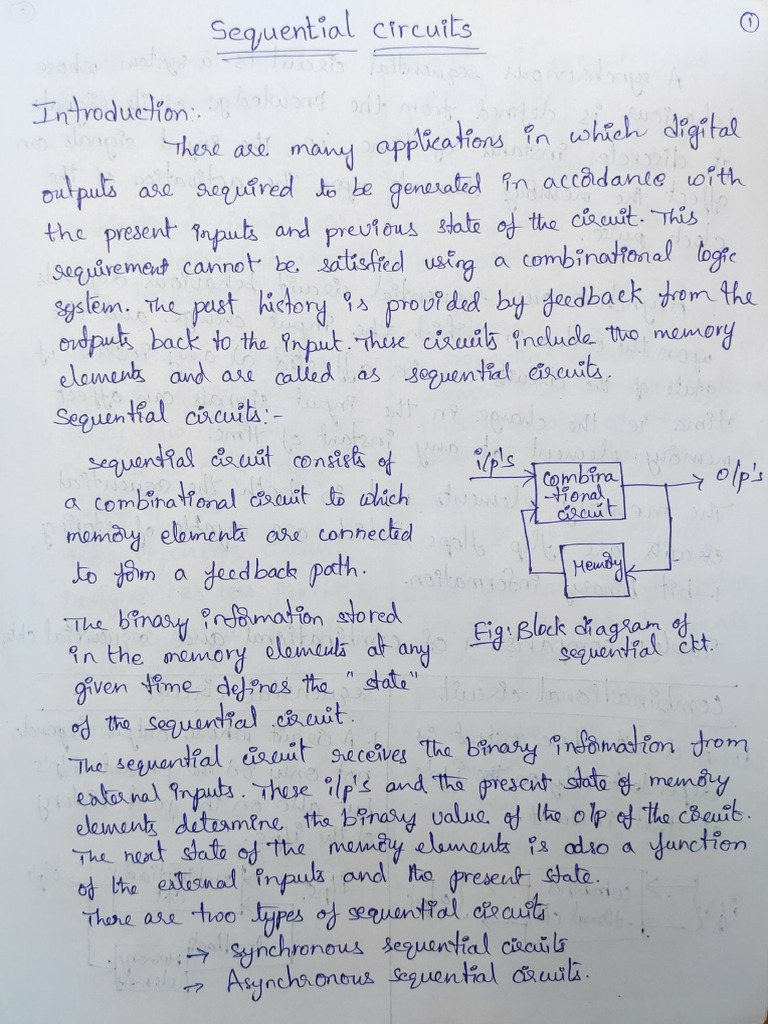 Sequential circuits
1
Introduction:.
There are many applications in which digital
outputs are required to be generated in accordance with
the present inputs and previous state of the circuit. This
requirement cannot be satisfied using a combinational logic
system. The past history is provided by feedback from the
outputs back to the input. These circuits include the memory
elements and are called as sequential circuits.
Sequential circuits:-
sequential circuit consists of
a combinational circuit to which
memory elements are connected
to form a feedback path.
i/p's
combina
-tional
circuit
o/p's
Memory
Fig: Block diagram of
sequential ckt.
The binary information stored
in the memory elements at any
given time defines the "state"
of the sequential circuit.
The sequential circuit receives the binary information from
external inputs. These i/p's and the present state of memory
elements determine the binary value of the o/p of the circuit.
The next state of the memory elements is also a function
of the external inputs and the present state.
There are two types of sequential circuits
→ synchronous sequential circuits
→ Asynchronous sequential circuits.